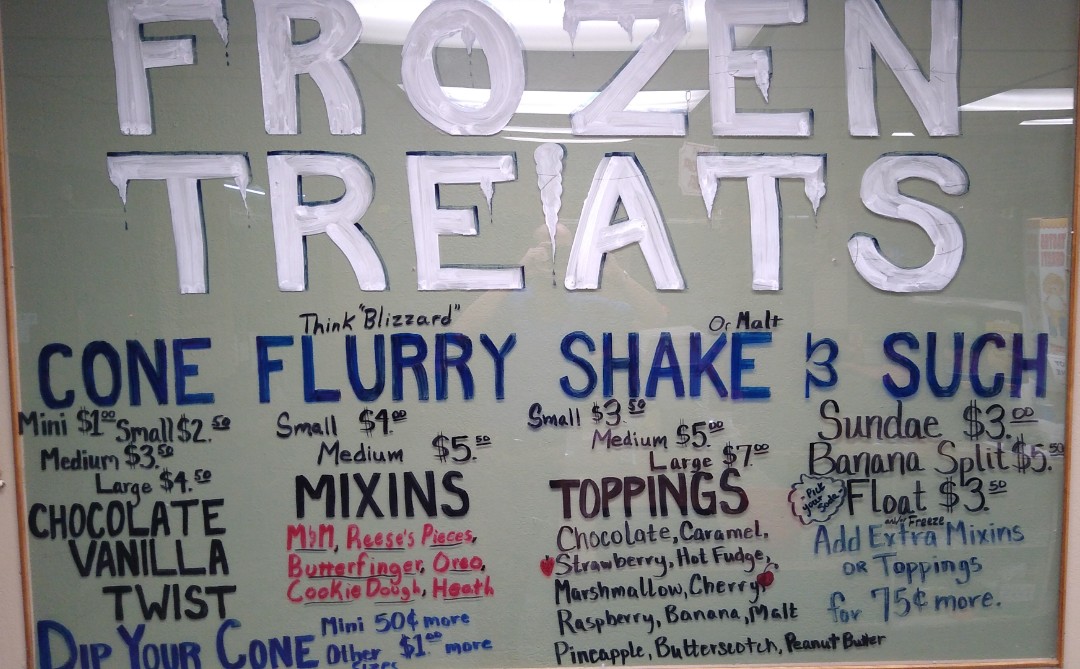 FROZEN
TREATS
Think "Blizzard"
Or Malt
CONE FLURRY SHAKE & SUCH
Mini $1.00 Small $2.50
Medium $3.50
Large $4.50
CHOCOLATE
VANILLA
TWIST
Small $4.00
Medium $5.50
MIXINS
M&M, Reese's Pieces,
Butterfinger, Oreo,
Cookie Dough, Heath
Small $3.50
Medium $5.00
Large $7.00
TOPPINGS
Chocolate, Caramel,
Strawberry, Hot Fudge,
Marshmallow, Cherry
Raspberry, Banana, Malt
Pineapple, Butterscotch, Peanut Butter
Sundae $3.00
Banana Split $5.50
-Pick your Soda-
Float $3.50
Freeze
Add Extra Mixins
OR Toppings
for 75¢ more.
DIP YOUR CONE
Mini 50¢ more
Other $1.00 more
Sizes